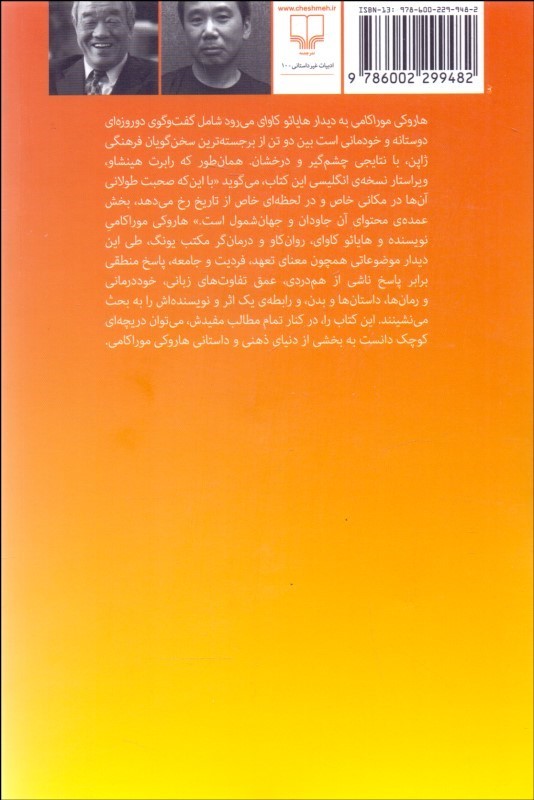 ISBN-13: 978-600-229-948-2
9 786002 299482
www.cheshmeh.ir
نشرچشمه
ادبیات غیرداستانی ۱۰۰
هاروکی موراکامی به دیدار هایائو کاوای می‌رود شامل گفت‌وگوی دوروزه‌ای
دوستانه و خودمانی است بین دو تن از برجسته‌ترین سخن‌گویان فرهنگی
ژاپن، با نتایجی چشم‌گیر و درخشان. همان‌طور که رابرت هینشاو،
ویراستار نسخه‌ی انگلیسی این کتاب، می‌گوید «با این‌که صحبت طولانی
آن‌ها در مکانی خاص و در لحظه‌ای خاص از تاریخ رخ می‌دهد، بخش
عمده‌ی محتوای آن جاودان و جهان‌شمول است.» هاروکی موراکامیِ
نویسنده و هایائو کاوای، روان‌کاو و درمان‌گر مکتب یونگ، طی این
دیدار موضوعاتی همچون معنای تعهد، فردیت و جامعه، پاسخ منطقی
برابر پاسخ ناشی از هم‌دردی، عمق تفاوت‌های زبانی، خوددرمانی
و رمان‌ها، داستان‌ها و بدن، و رابطه‌ی یک اثر و نویسنده‌اش را به بحث
می‌نشینند. این کتاب را، در کنار تمام مطالب مفیدش، می‌توان دریچه‌ای
کوچک دانست به بخشی از دنیای ذهنی و داستانی هاروکی موراکامی.